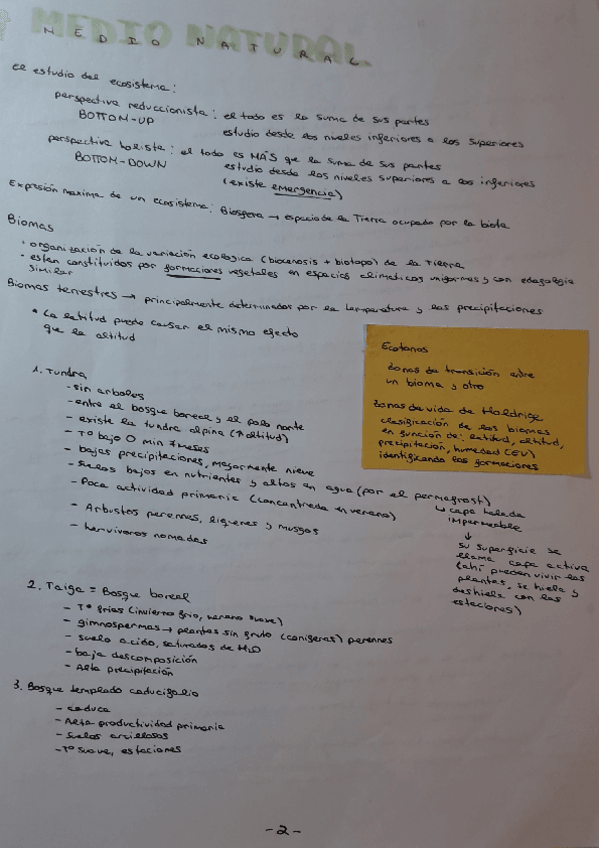 MEDIO NATURAL
El estudio del ecosistema:
perspectiva reduccionista: el todo es la suma de sus partes
BOTTOM-UP estudio desde los niveles inferiores a los superiores
perspectiva holista: el todo es MÁS que la suma de sus partes
BOTTOM-DOWN estudio desde los niveles superiores a los inferiores
(existe emergencia)
Expresión maxima de un ecosistema: Biosfera → espacio de la Tierra ocupado por la biota
Biomas
· organización de la variación ecologica (biocenosis + biotopo) de la Tierra
· estan constituidos por formaciones vegetales en espacios climaticos uniformes y con edafologia
similar
Biomas terrestres → principalmente determinados por la temperatura y las precipitaciones
• La latitud puede causar el mismo efecto
que la altitud
Ecotonos
zonas de transición entre
un bioma y otro
Zonas de vida de Holdrige
clasificación de los biomas
en función de: latitud, altitud,
precipitación, humedad (EV)
identificando las formaciones
1. Tundra
- sin arboles
- entre el bosque boreal y el polo norte
- existe la tundra alpina (↑altitud)
- Tº bajo 0 min 7 meses
- bajas precipitaciones, mayormente nieve
- Suelos bajos en nutrientes y altos en agua (por el permagrost)
- Poca actividad primaria (concentrada en verano)
- Arbustos perennes, liquenes y musgos
- hervivoros nomadas
↳ capa helada
impermeable
↓
su superficie se
llama capa activa
(ahí pueden vivir las
plantas, se hiela y
deshiela con las
estaciones)
2. Taiga = Bosque boreal
- Tº frias (invierno frio, verano suave)
- gimnospermas → plantas sin fruto (coniferas) perennes
- suelo acido, saturados de H2O
- baja descomposición
- Alta precipitación
3. Bosque templado caducifolio
- caduca
- Alta productividad primaria
- Suelos arcillosos
- Tº suave, estaciones
- 2 -